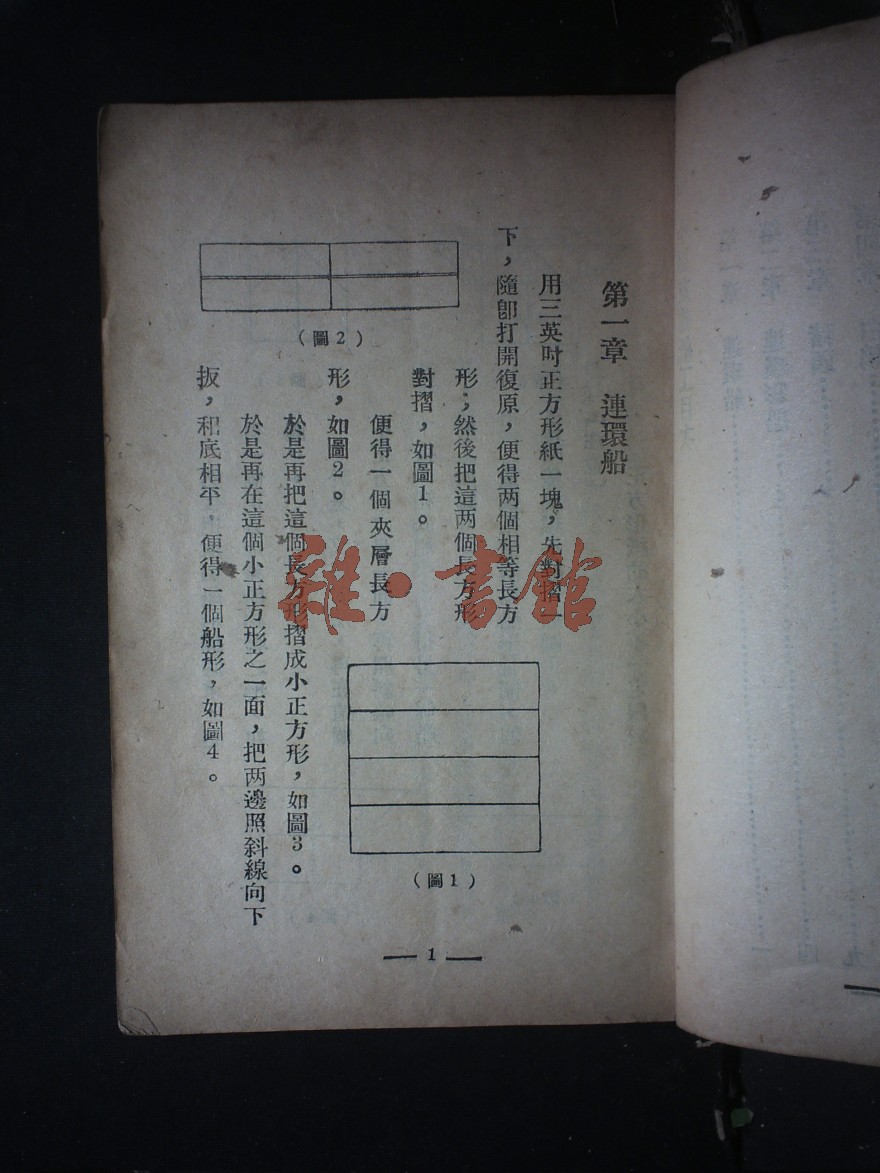 第一章　連環船
用三英吋正方形紙一塊，先對摺一
下，隨卽打開復原，便得两個相等長方
形；然後把這两個長方形
對摺，如圖1。
便得一個夾層長方
形，如圖2。
於是再把這個長方形摺成小正方形，如圖3。
於是再在這個小正方形之一面，把两邊照斜線向下
扳，和底相平，便得一個船形，如圖4。
（圖2）
（圖1）
— 1 —
雜·書館